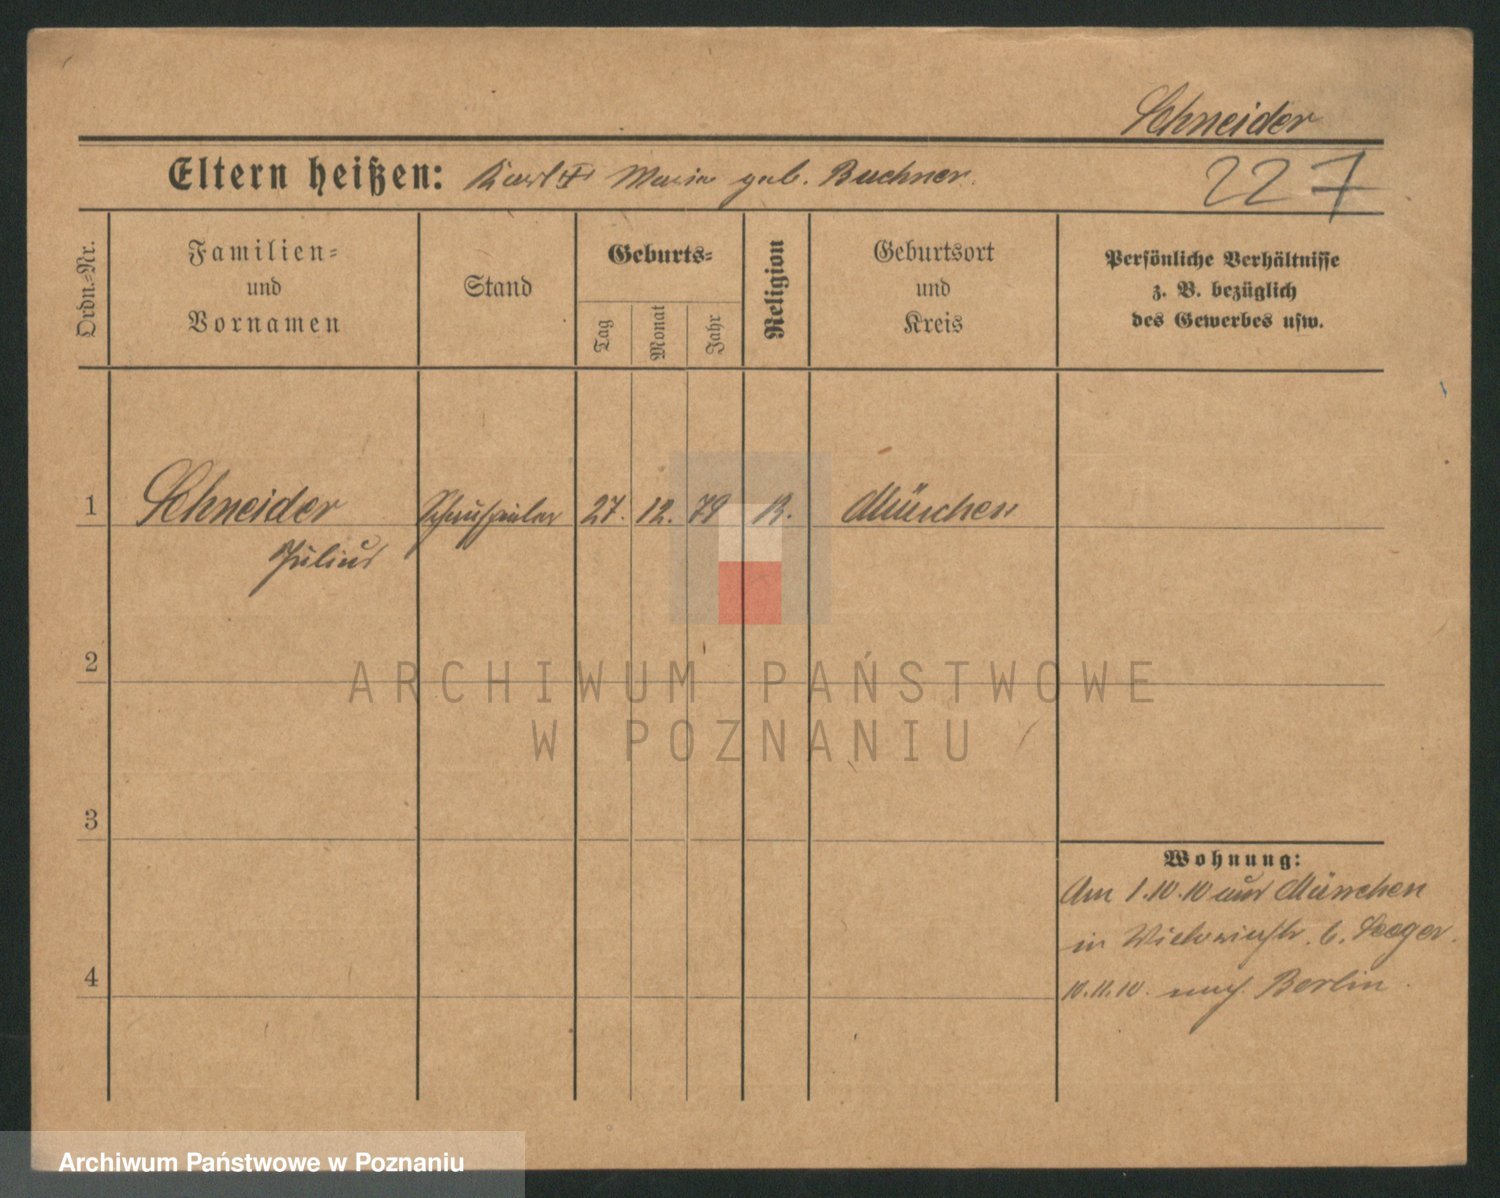 Schneider
Eltern heißen: Karl † Maria geb. Buchner.
227
Ordn.-Nr.
Familien-
und
Vornamen
Stand
Geburts-
Tag
Monat
Jahr
Religion
Geburtsort
und
Kreis
Persönliche Verhältnisse
z. B. bezüglich
des Gewerbes usw.
1 Schneider Schauspieler 27. 12. 79 K. München
Julius
2
3
4
Wohnung:
Am 1.10.10 aus München
in b. Seeger.
10.11.10. nach Berlin.
ARCHIWUM PAŃSTWOWE
W POZNANIU
Archiwum Państwowe w Poznaniu